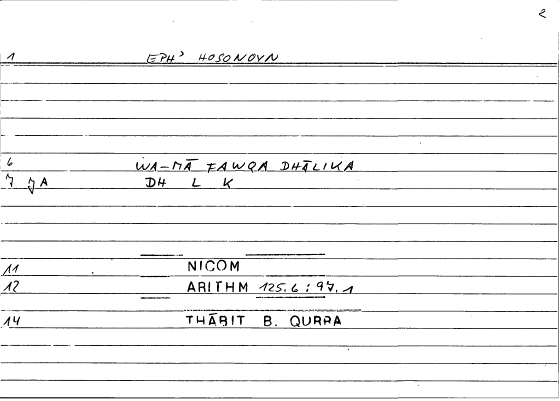 2
1 EPH' HOSONOVN
6 WA-MĀ FAWQA DHĀLIKA
7 JA DH L K
11 NICOM
12 ARITHM 125.6 : 97.1
14 THĀBIT B. QURRA